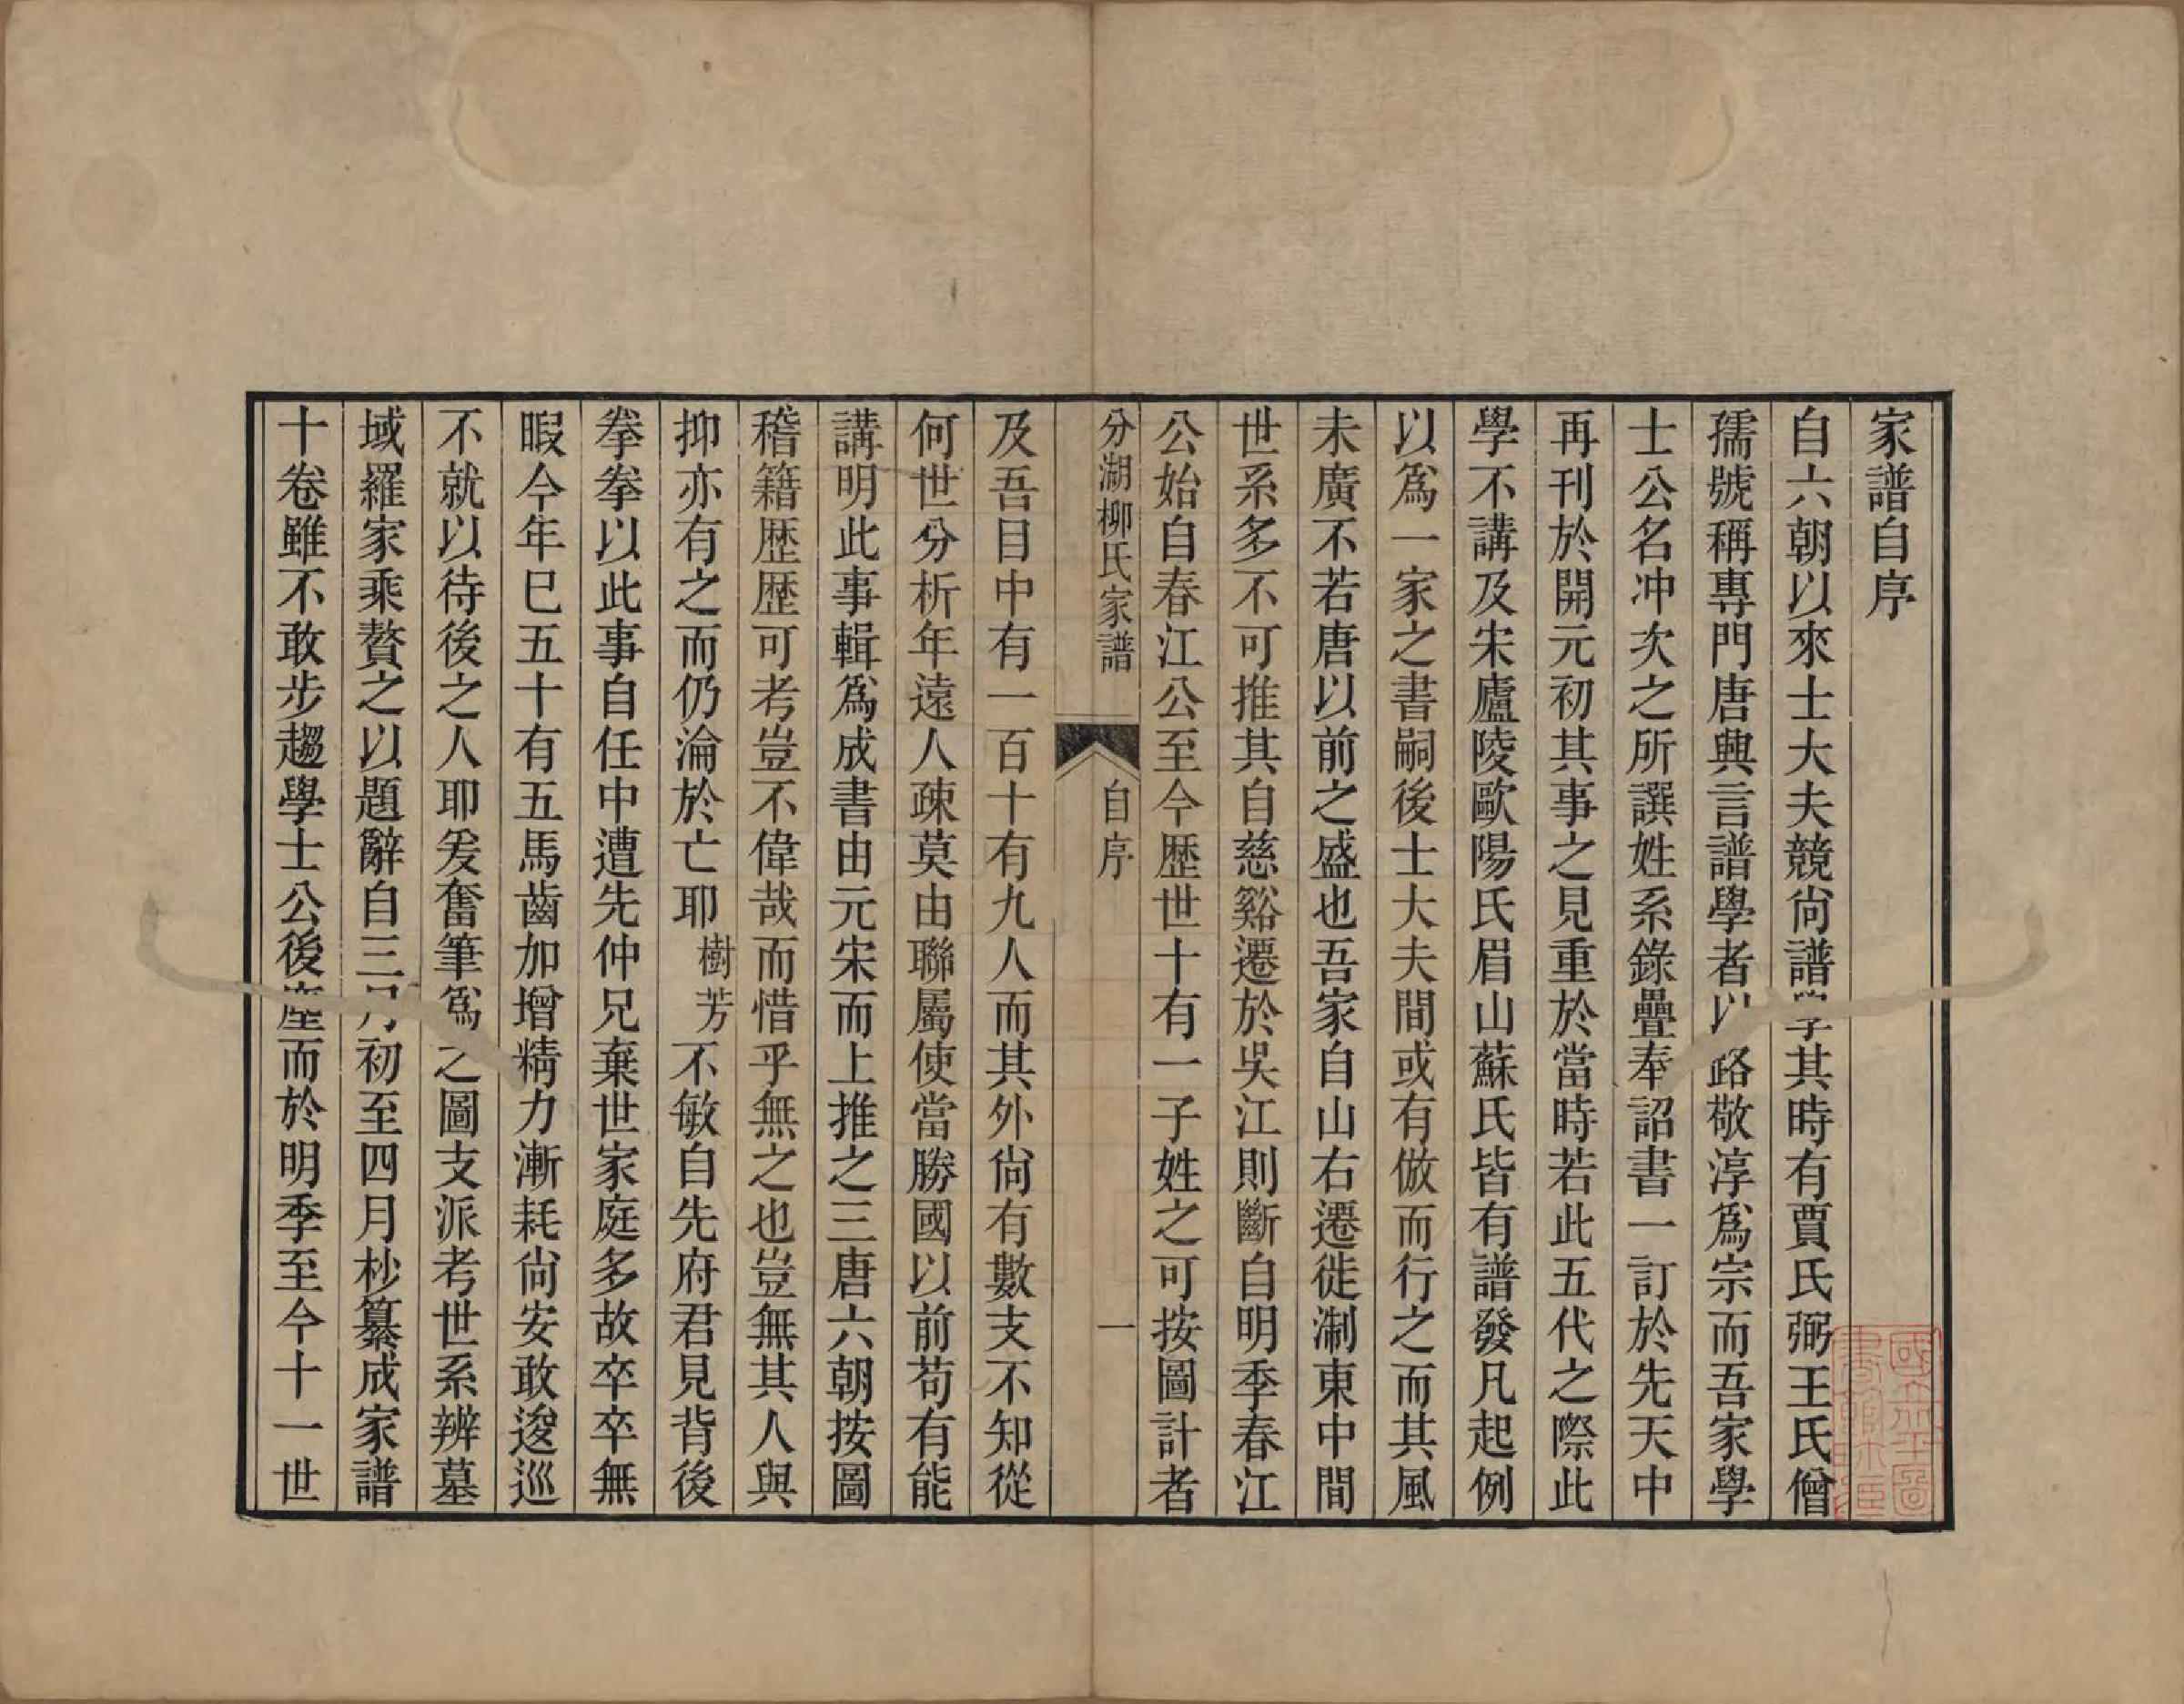 家譜自序
自六朝以來士大夫競尙譜學其時有賈氏弼王氏僧
孺號稱專門唐興言譜學者以路敬淳爲宗而吾家學
士公名冲次之所譔姓系錄疊奉詔書一訂於先天中
再刊於開元初其事之見重於當時若此五代之際此
學不講及宋廬陵歐陽氏眉山蘇氏皆有譜發凡起例
以爲一家之書嗣後士大夫間或有倣而行之而其風
未廣不若唐以前之盛也吾家自山右遷徙淛東中間
世系多不可推其自慈谿遷於吳江則斷自明季春江
公始自春江公至今歷世十有一子姓之可按圖計者
分湖柳氏家譜 自序 一
及吾目中有一百十有九人而其外尙有數支不知從
何世分析年遠人疎莫由聯屬使當勝國以前苟有能
講明此事輯爲成書由元宋而上推之三唐六朝按圖
稽籍歷歷可考豈不偉哉而惜乎無之也豈無其人與
抑亦有之而仍淪於亡耶樹芳不敏自先府君見背後
拳拳以此事自任中遭先仲兄棄世家庭多故卒卒無
暇今年巳五十有五馬齒加增精力漸耗尙安敢逡巡
不就以待後之人耶爰奮筆爲之圖支派考世系辨墓
域羅家乘贅之以題辭自三月初至四月杪纂成家譜
十卷雖不敢步趨學士公後塵而於明季至今十一世